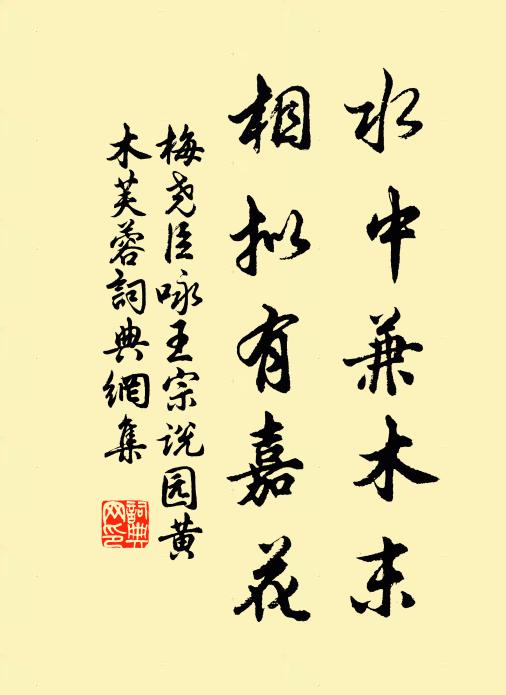 水中兼木末
相拟有嘉花
梅尧臣咏王宗说园黄
木芙蓉詞典網集
詞典
网印